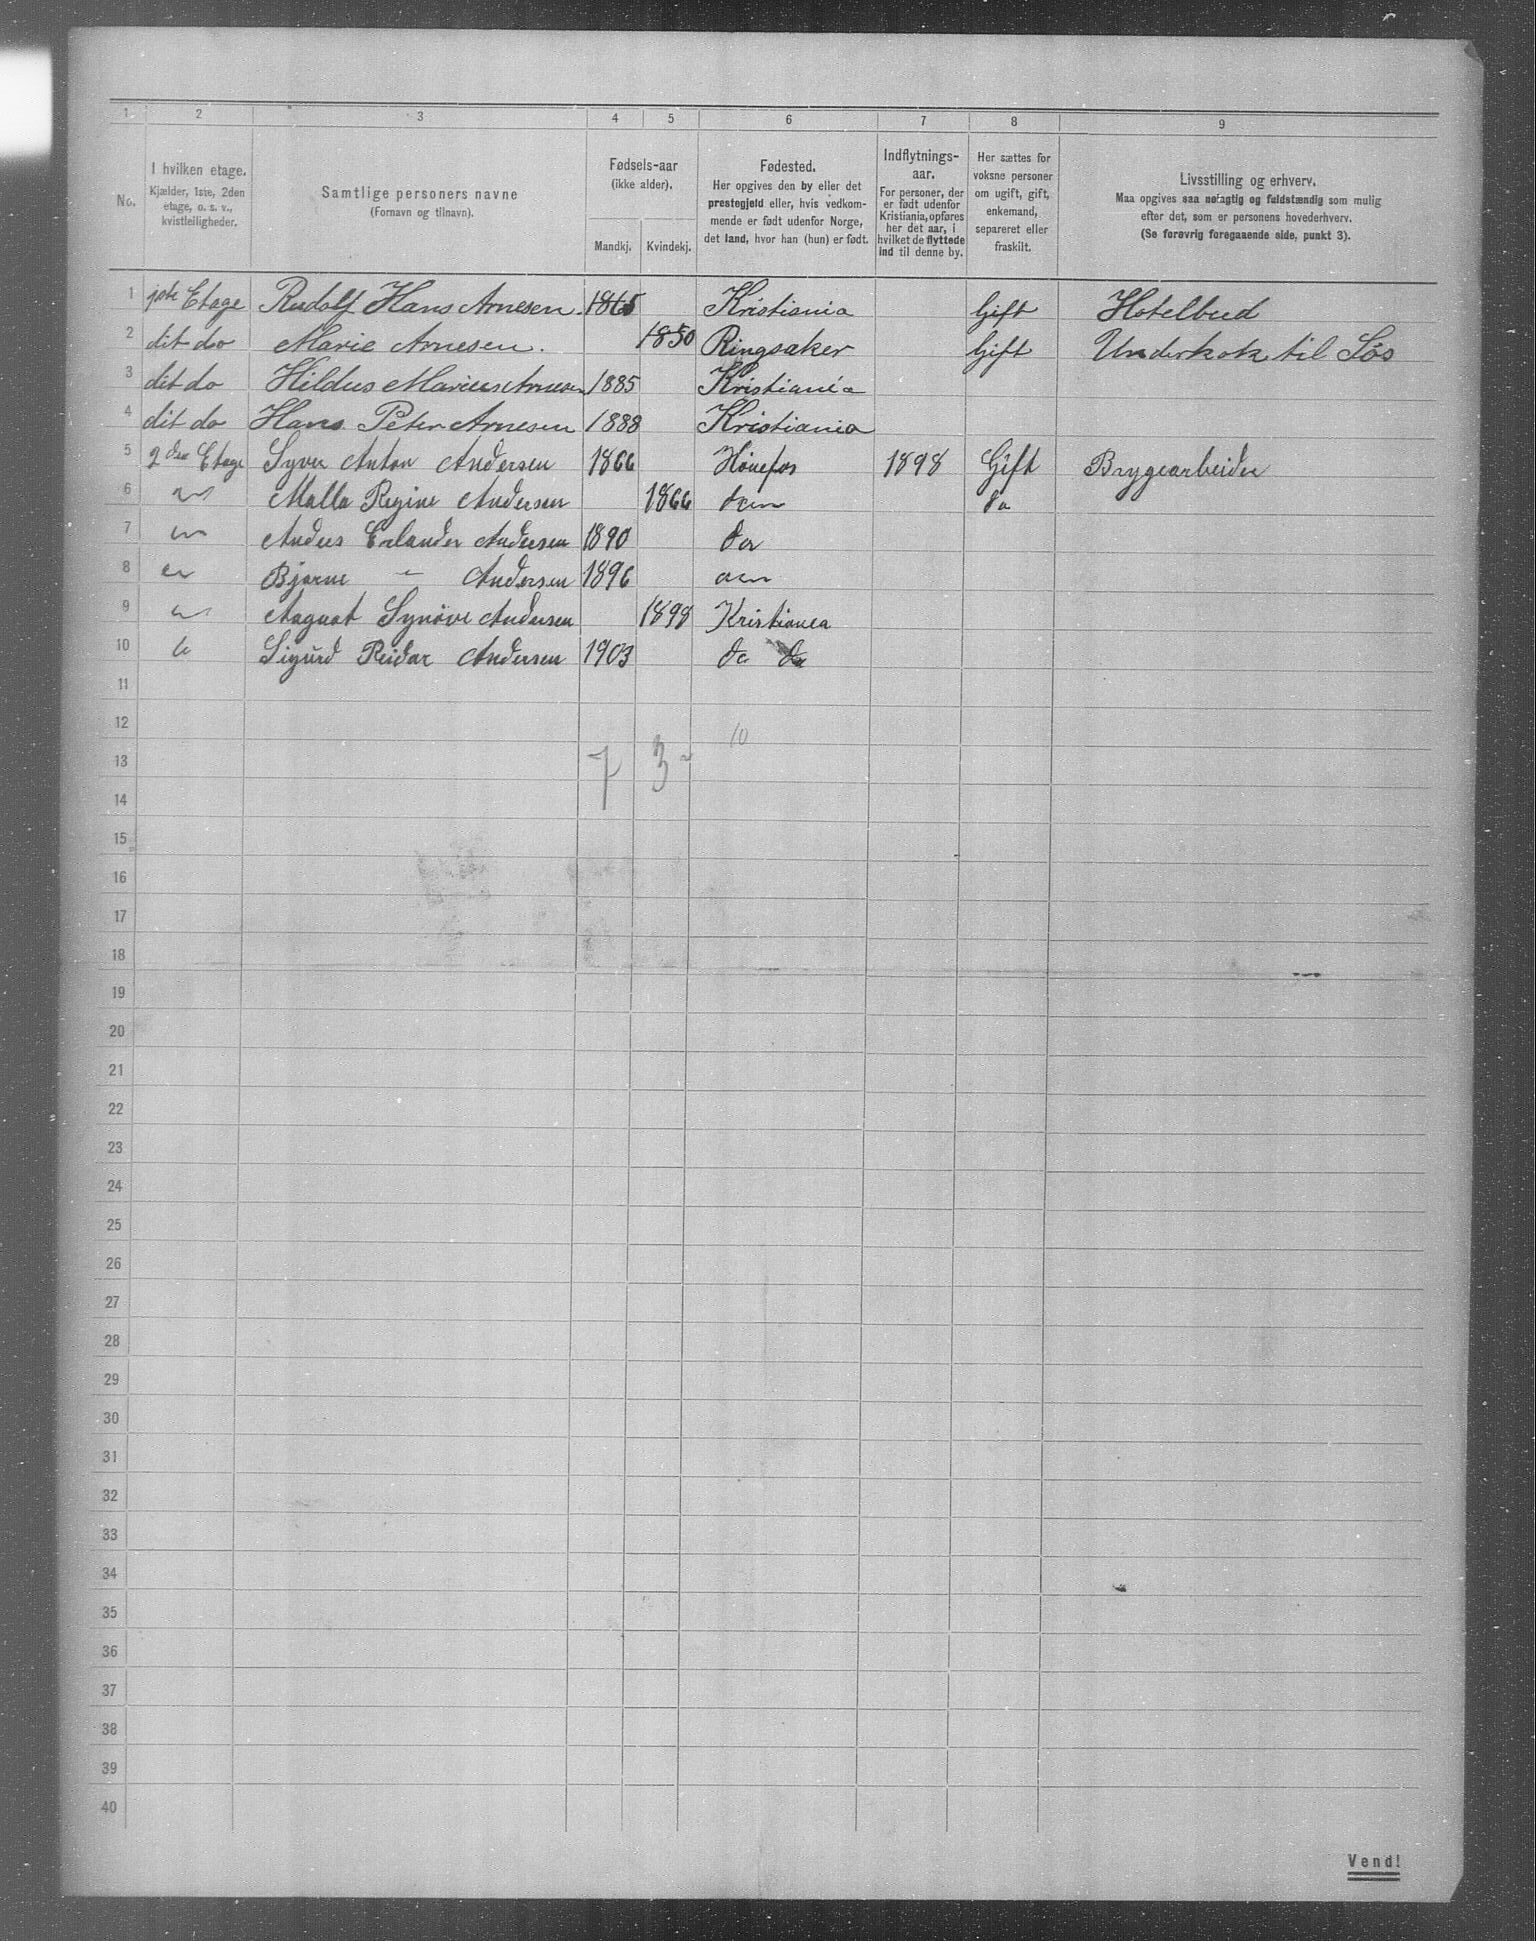 1 2 3 4 5 6 7 8 9
No.
I hvilken etage.
Kjælder, 1ste, 2den
etage, o. s. v.,
kvistleiligheder.
Samtlige personers navne
(Fornavn og tilnavn).
Fødsels-aar
(ikke alder).
Mandkj. Kvindekj.
Fødested.
Her opgives den by eller det
prestegjeld eller, hvis vedkom-
mende er født udenfor Norge,
det land, hvor han (hun) er født.
Indflytnings-
aar.
For personer, der
er født udenfor
Kristiania, opføres
her det aar, i
hvilket de flyttede
ind til denne by.
Her sættes for
voksne personer
om ugift, gift,
enkemand,
separeret eller
fraskilt.
Livsstilling og erhverv.
Maa opgives saa nøiagtig og fuldstændig som mulig
efter det, som er personens hovederhverv.
(Se forøvrig foregaaende side, punkt 3).
1 1ste Etage Rudolf Hans Arnesen. 1865 Kristiania Gift Hotelbud
2 dit do Marie Arnesen. 1850 Ringsaker Gift Underkok til Søs
3 dit do Hildus Marius Arnesen 1885 Kristiania
4 dit do Hans Peter Arnesen 1888 Kristiania
5 2den Etage Syver Anton Andersen 1866 Hönefos 1898 Gift Brygearbeider
6 Malla Regine Andersen 1866 do
7 Anders Erlander Andersen 1890
8 Bjarne " Andersen 1896
9 Aagnot Synöve Andersen 1898 Kristiania
10 Sigurd Reidar Andersen 1903 do do
11
12 10
13 7 3
14
15
16
17
18
19
20
21
22
23
24
25
26
27
28
29
30
31
32
33
34
35
36
37
38
39
40
Vend!